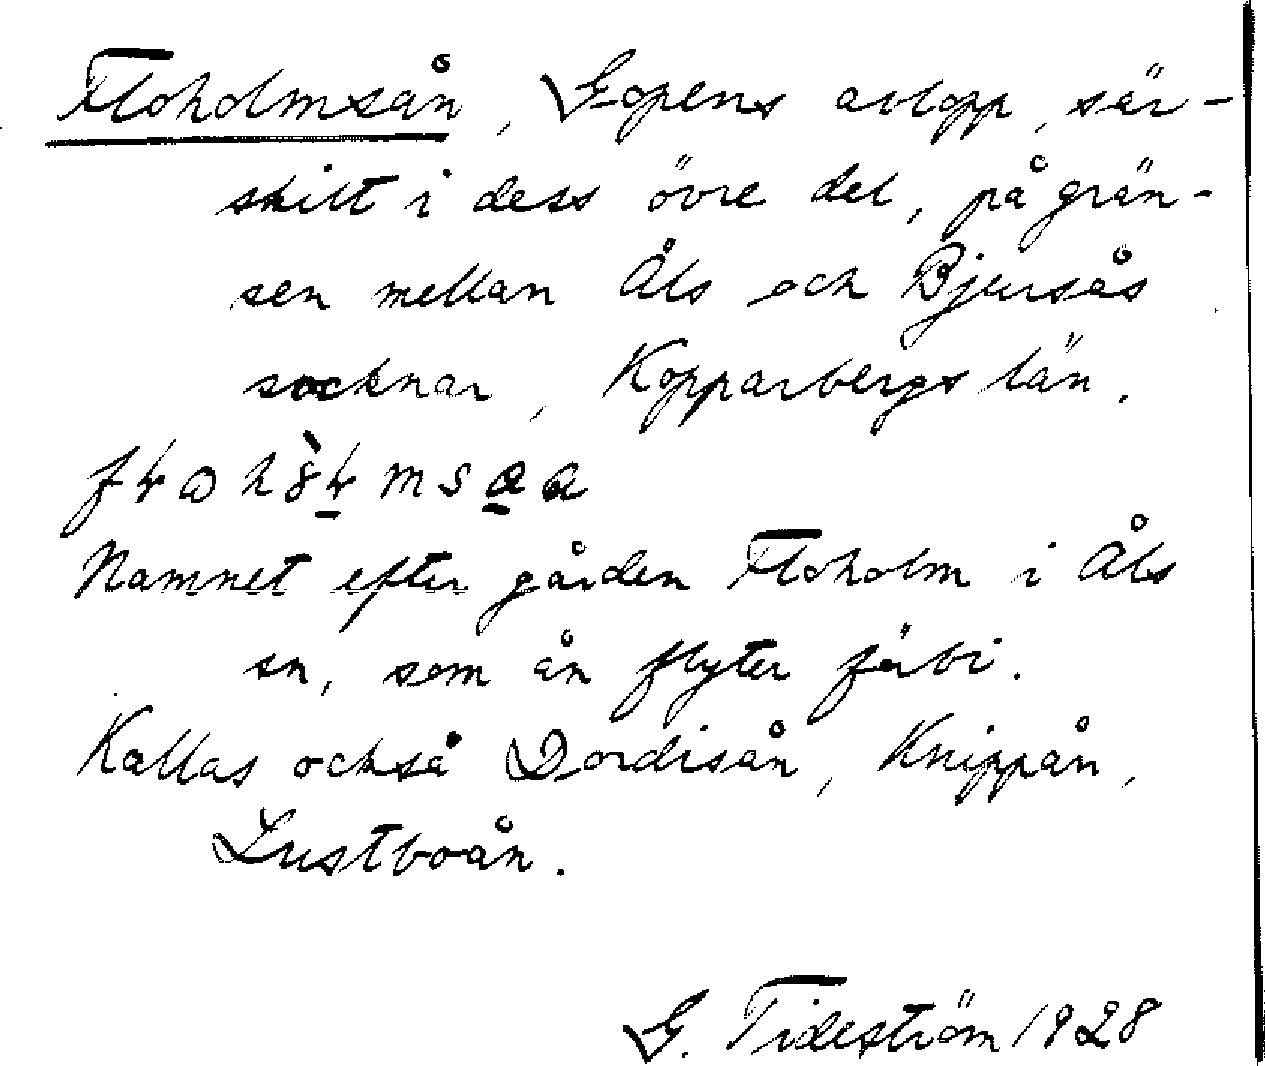 Floholmsån, Gopens avlopp, sär-
skilt i dess övre del, på grän-
sen mellan Åls och Bjursås
socknar, Kopparbergs län.
Namnet efter gården Floholm i Åls
sn, som ån flyter förbi.
Kallas också Dordisån, Knippån,
Lustboån.
G. Tideström 1928